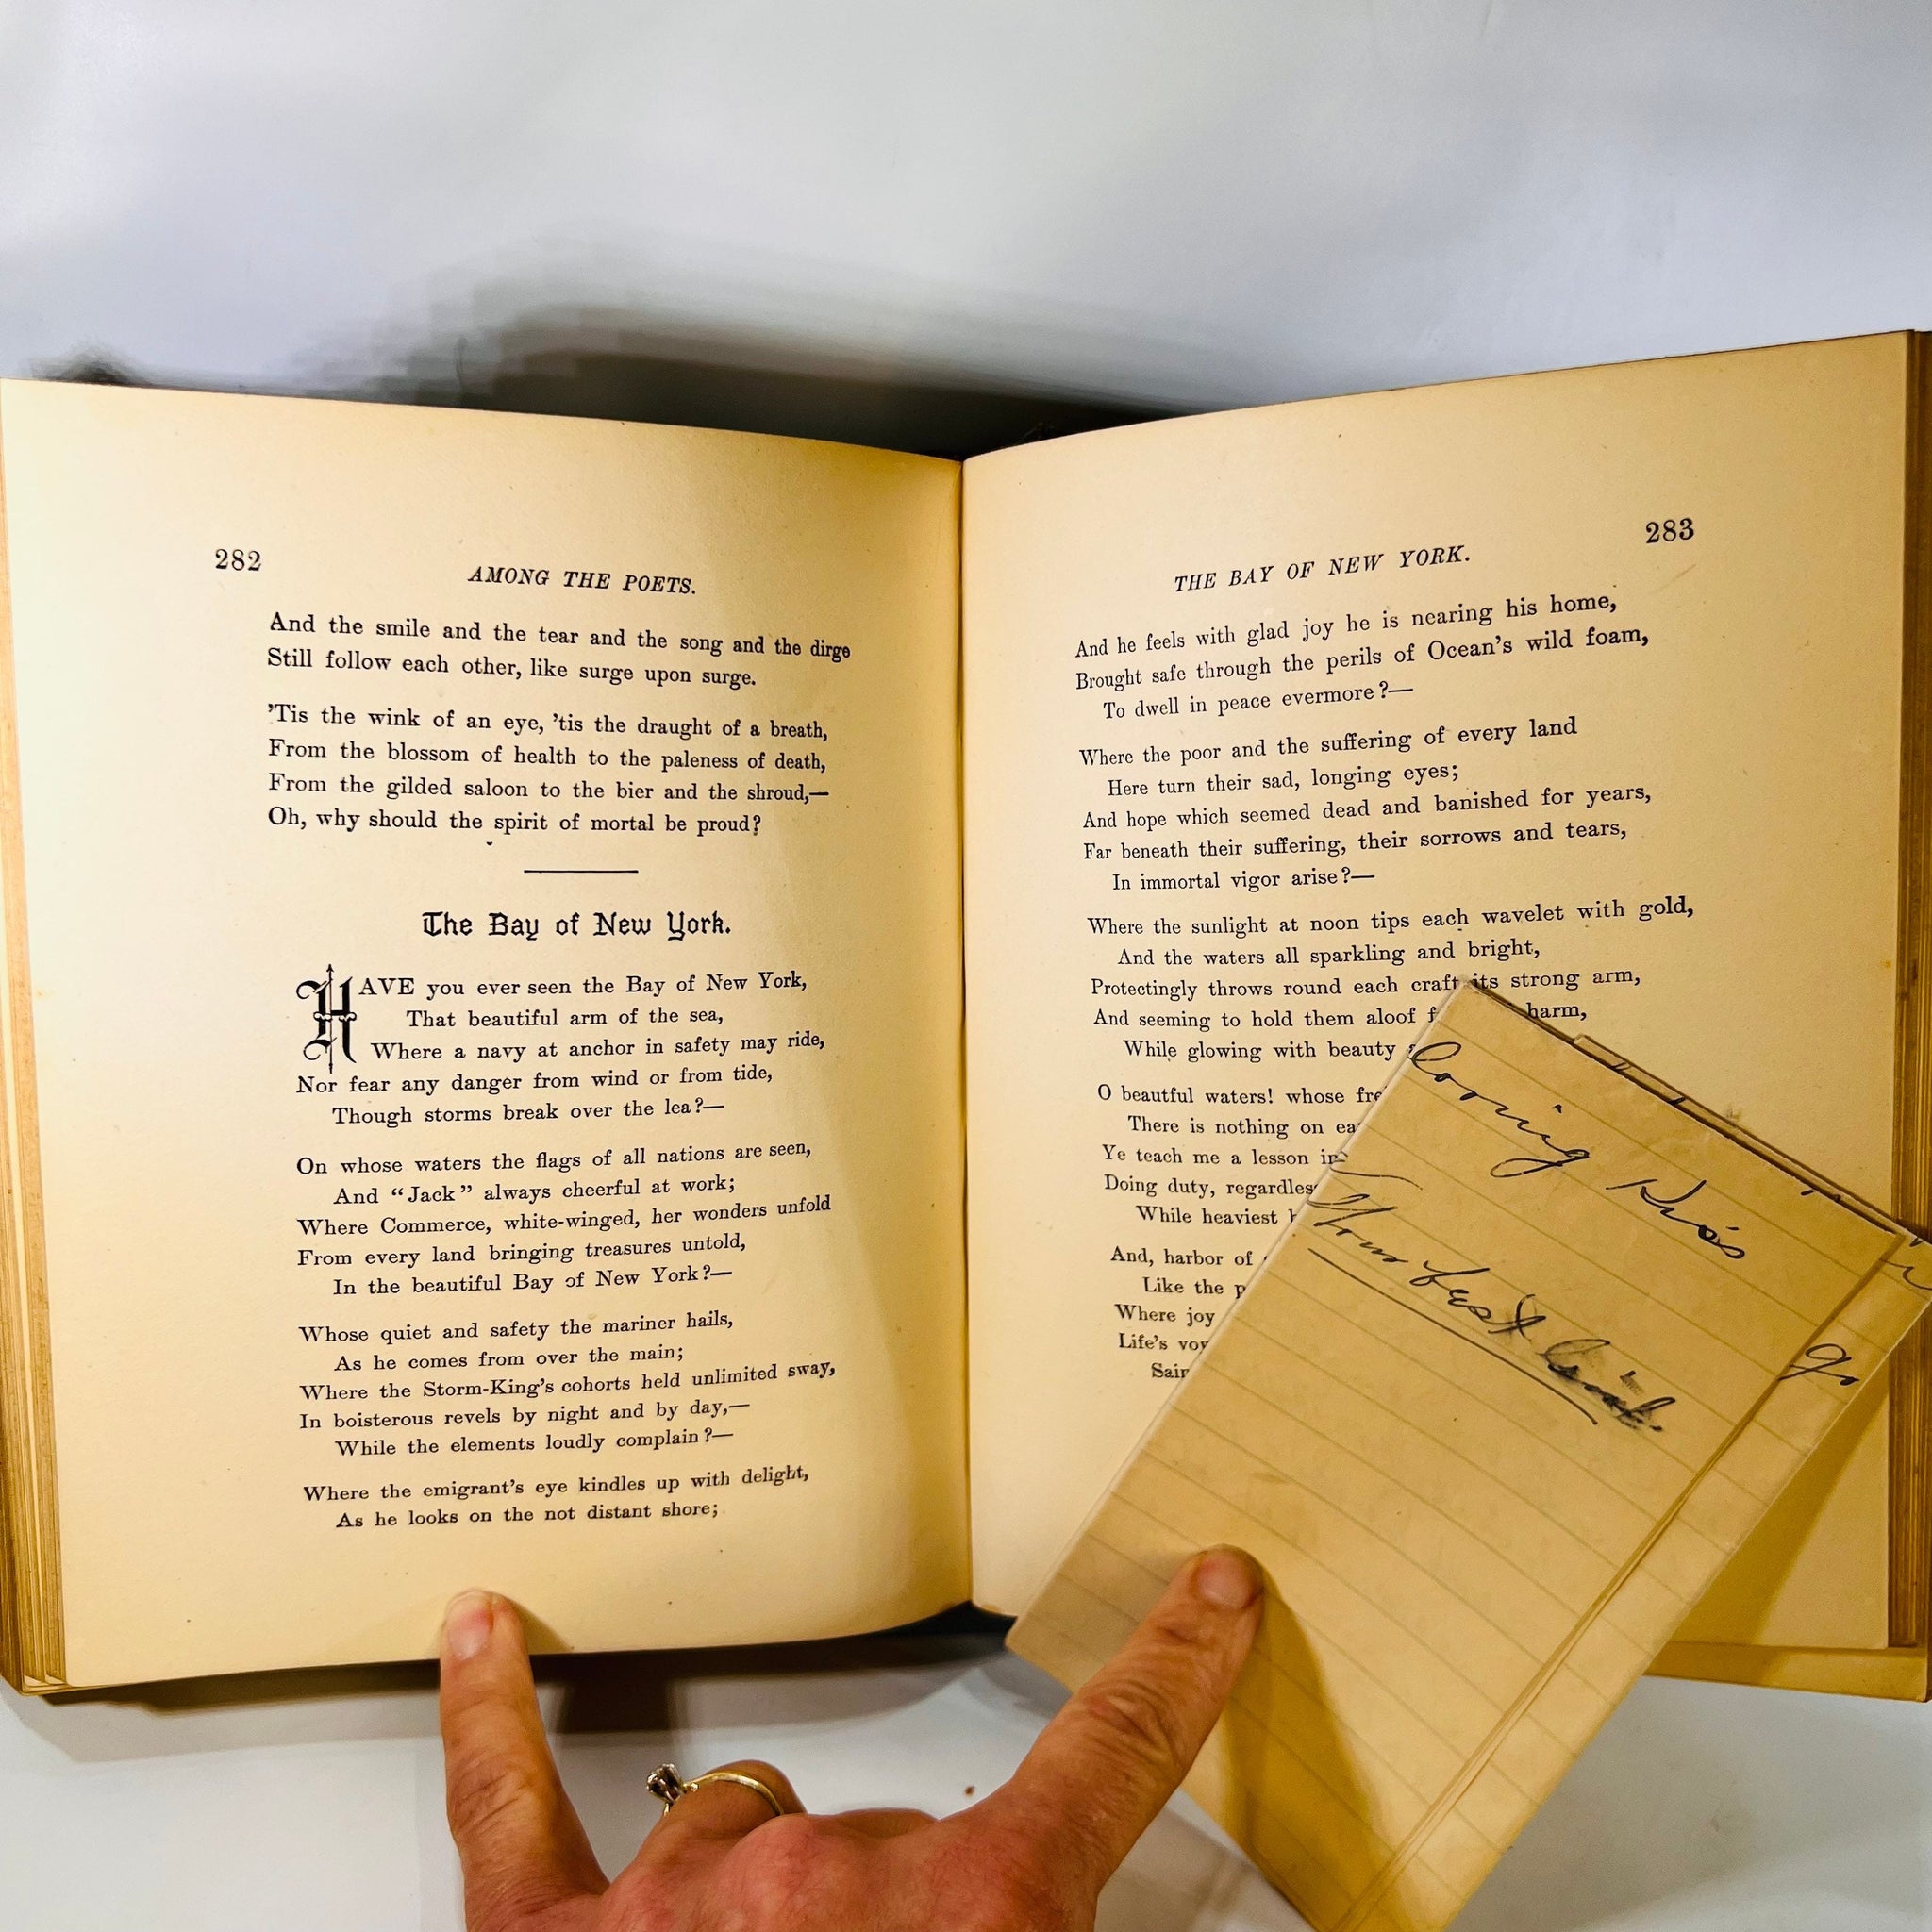 282
AMONG THE POETS.
And the smile and the tear and the song and the dirge
Still follow each other, like surge upon surge.
'Tis the wink of an eye, 'tis the draught of a breath,
From the blossom of health to the paleness of death,
From the gilded saloon to the bier and the shroud,—
Oh, why should the spirit of mortal be proud?
The Bay of New York.
HAVE you ever seen the Bay of New York,
That beautiful arm of the sea,
Where a navy at anchor in safety may ride,
Nor fear any danger from wind or from tide,
Though storms break over the lea?—
On whose waters the flags of all nations are seen,
And “Jack” always cheerful at work;
Where Commerce, white-winged, her wonders unfold
From every land bringing treasures untold,
In the beautiful Bay of New York?—
Whose quiet and safety the mariner hails,
As he comes from over the main;
Where the Storm-King's cohorts held unlimited sway,
In boisterous revels by night and by day,—
While the elements loudly complain?—
Where the emigrant's eye kindles up with delight,
As he looks on the not distant shore;
THE BAY OF NEW YORK.
283
And he feels with glad joy he is nearing his home,
Brought safe through the perils of Ocean's wild foam,
To dwell in peace evermore?—
Where the poor and the suffering of every land
Here turn their sad, longing eyes;
And hope which seemed dead and banished for years,
Far beneath their suffering, their sorrows and tears,
In immortal vigor arise?—
Where the sunlight at noon tips each wavelet with gold,
And the waters all sparkling and bright,
Protectingly throws round each craft its strong arm,
And seeming to hold them aloof harm,
While glowing with beauty
O beautful waters! whose
There is nothing on
Ye teach me a lesson
Doing duty, regardless
While heaviest
And, harbor of
Like the
Where joy
Life's
loving
best